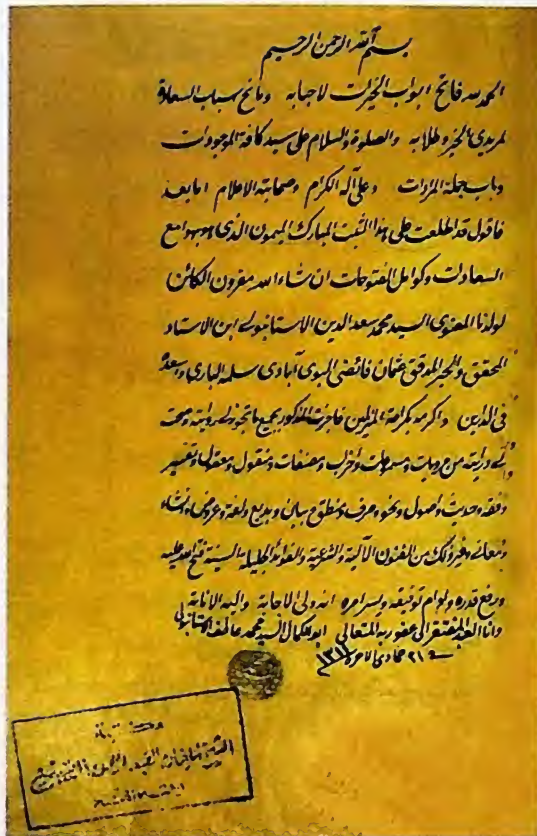 بسم الله الرحمن الرحيم
الحمد لله فاتح ابواب الخيرات لاحبابه ومانح اسباب السعادة
لمريدى الخير وطلابه والصلوة والسلام على سيد كافة الموجودات
وباب جملة المرادات وعلى آله الكرام وصحابته الاعلام اما بعد
فاقول قد اطلعت على هذا الثبت المبارك الميمون الذى هو بجوامع
السعادات وكوامل الفتوحات ان شاء الله مقرون الكائن
لولدنا المعنوى السيد محمد سعد الدين الاستانبولى ابن الاستاد
المحقق والحبر المدقق عثمان فائضى آبادى سلمه البارى واسعده
فى الدارين واكرمه بكرامة المنزلين فاجزت المذكور بجميع ما تجوز لى روايته وصحت
لى درايته من مرويات ومسموعات واحزاب ومصنفات ومنقول ومعقول وتفسير
وفقه وحديث واصول ونحو وصرف ومنطق وبيان وبديع ولغة وعروض وانشاء
ومعانى وغير ذلك من الفنون الآلية والشرعية والفوائد الجليلة السنية فتح الله عليه
ورفع قدره وادام توفيقه ويسر امره انه ولى الاجابة واليه الانابة
وانا العبد المفتقر الى عفو ربه المتعالى ابو الكمال السيد محمد عاطف الاستانبولى
٢١ جمادى الآخرة